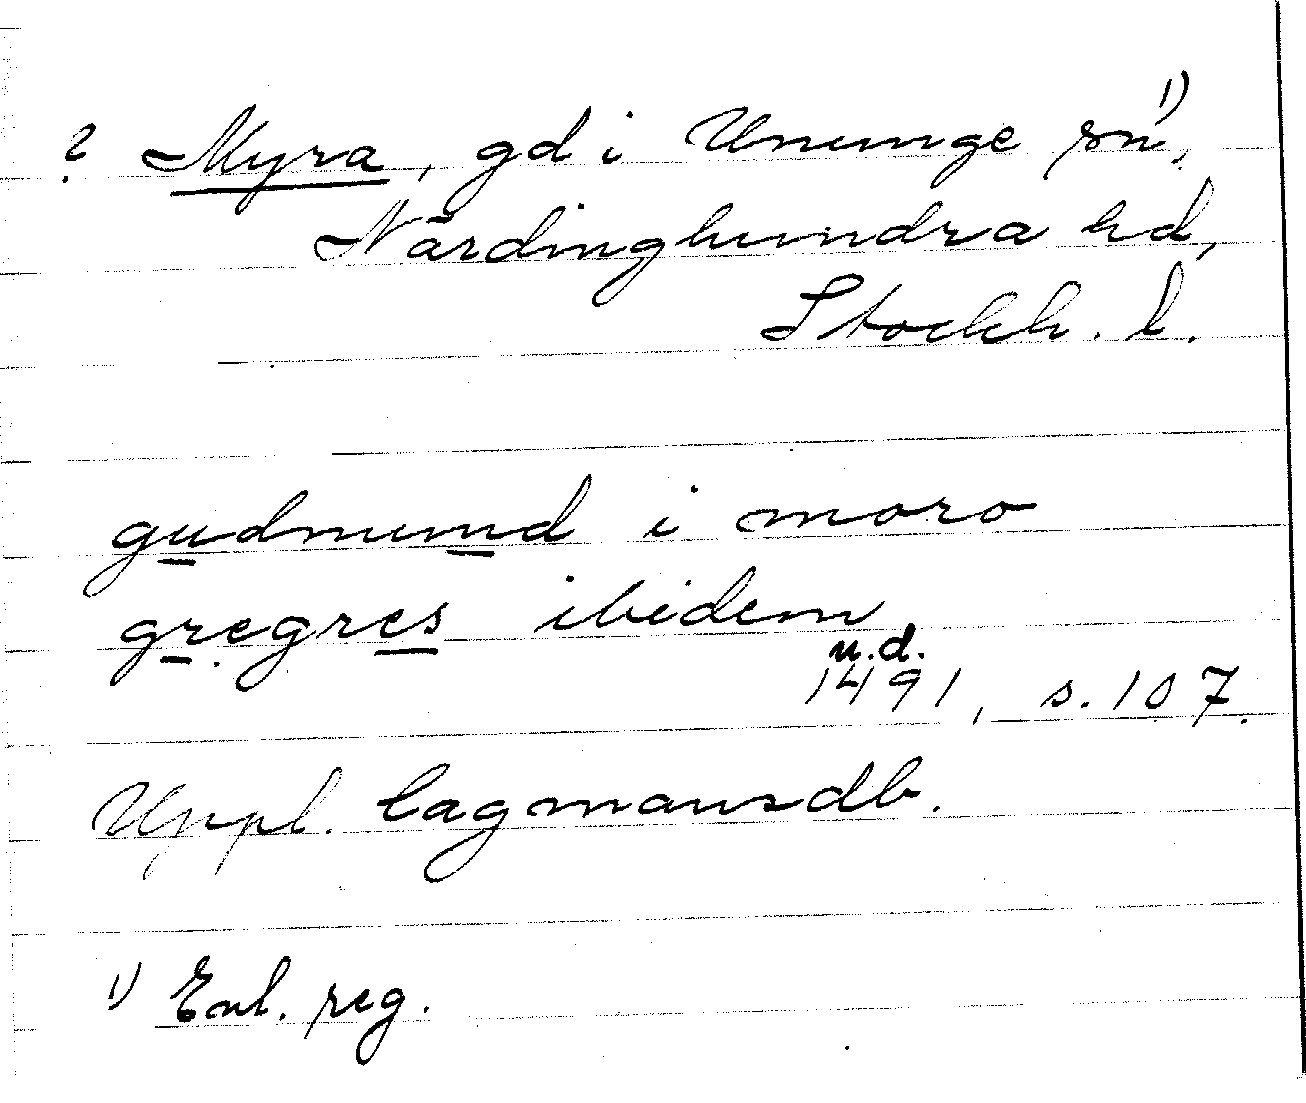 ? Myra, gd i Ununge sn¹⁾,
Närdinghundra hd,
Stockh. l.
gudmund i moro
gregres ibidem
u.d.
1491, s. 107.
Uppl. lagmansdb.
1) Enl. reg.